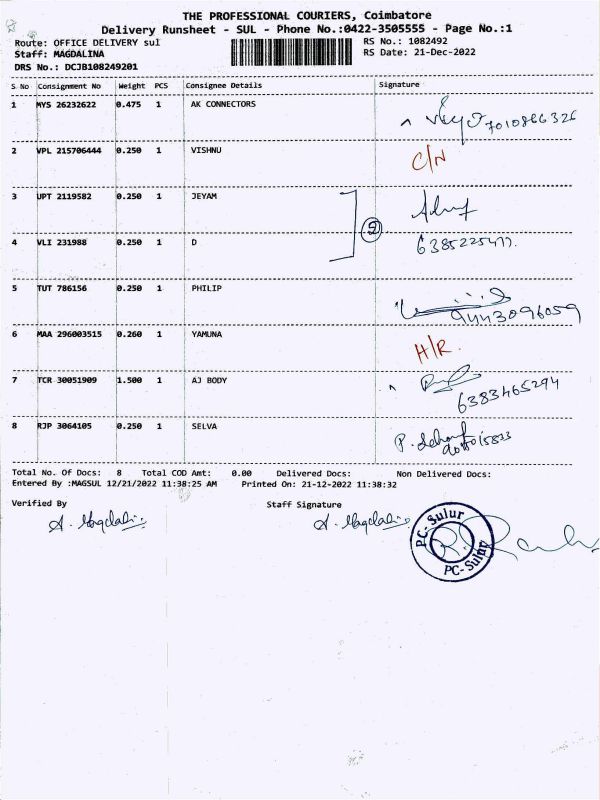 THE PROFESSIONAL COURIERS, Coimbatore
Delivery Runsheet - SUL - Phone No.:0422-3505555 - Page No.:1
Route: OFFICE DELIVERY sul
RS No.: 1082492
Staff: MAGDALINA
RS Date: 21-Dec-2022
DRS No.: DCJB108249201
S No Consignment No Weight PCS Consignee Details Signature
1 MYS 26232622 0.475 1 AK CONNECTORS
7010866326
2 VPL 215706444 0.250 1 VISHNU C/N
3 UPT 2119582 0.250 1 JEYAM
4 VLI 231988 0.250 1 D
5 TUT 786156 0.250 1 PHILIP
9443096059
6 MAA 296003515 0.260 1 YAMUNA H/R
7 TCR 30051909 1.500 1 AJ BODY
6383465294
8 RJP 3064105 0.250 1 SELVA
Total No. Of Docs: 8 Total COD Amt: 0.00 Delivered Docs: Non Delivered Docs:
Entered By :MAGSUL 12/21/2022 11:38:25 AM Printed On: 21-12-2022 11:38:32
Verified By Staff Signature
A. Magdalin A. Magdalin
PC-Sulur
PC-Sulur